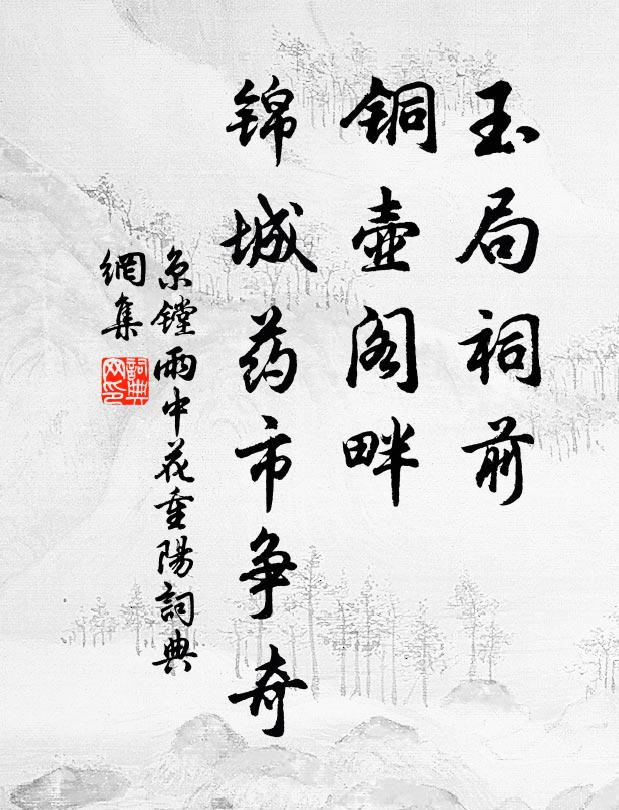 玉局祠前
铜壶阁畔
锦城药市争奇
京镗雨中花重陽詞典
網集
詞典
网印